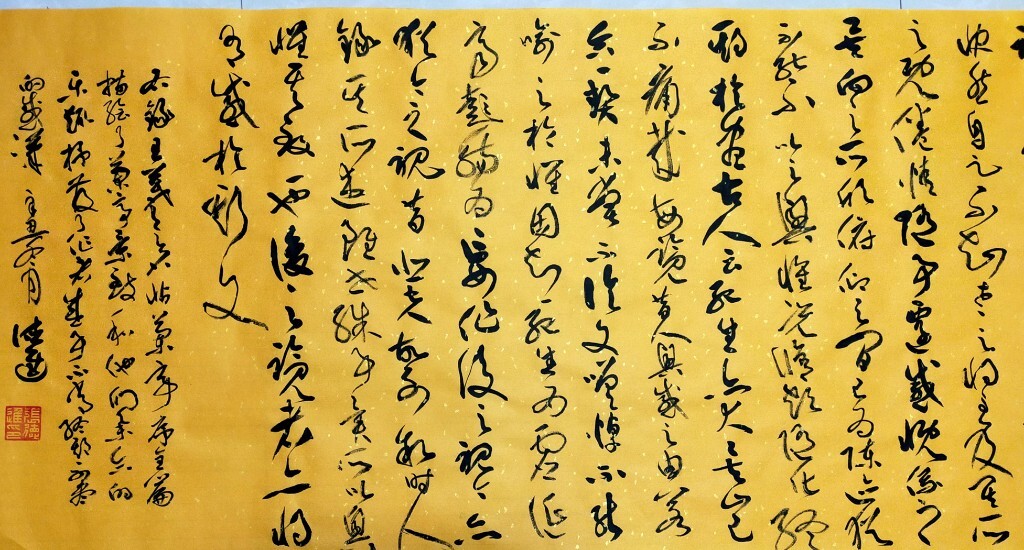 快然自足不知老之將至及其所
之既倦情隨事遷感慨係之
矣向之所欣俯仰之間已為陳迹猶
不能不以之興懷況脩短隨化終
期於盡古人云死生亦大矣豈
不痛哉每覽昔人興感之由若
合一契未嘗不臨文嗟悼不能
喻之於懷固知一死生為虛誕
齊彭殤為妄作後之視今亦
猶今之視昔悲夫故列敘時人
錄其所述雖世殊事異所以興
懷其致一也後之覽者亦將
有感於斯文
右錄王羲之蘭亭序全篇
描繪了蘭亭景致和他們集會的
樂趣抒發了作者盛事不常
的感嘆 辛丑冬月 德進